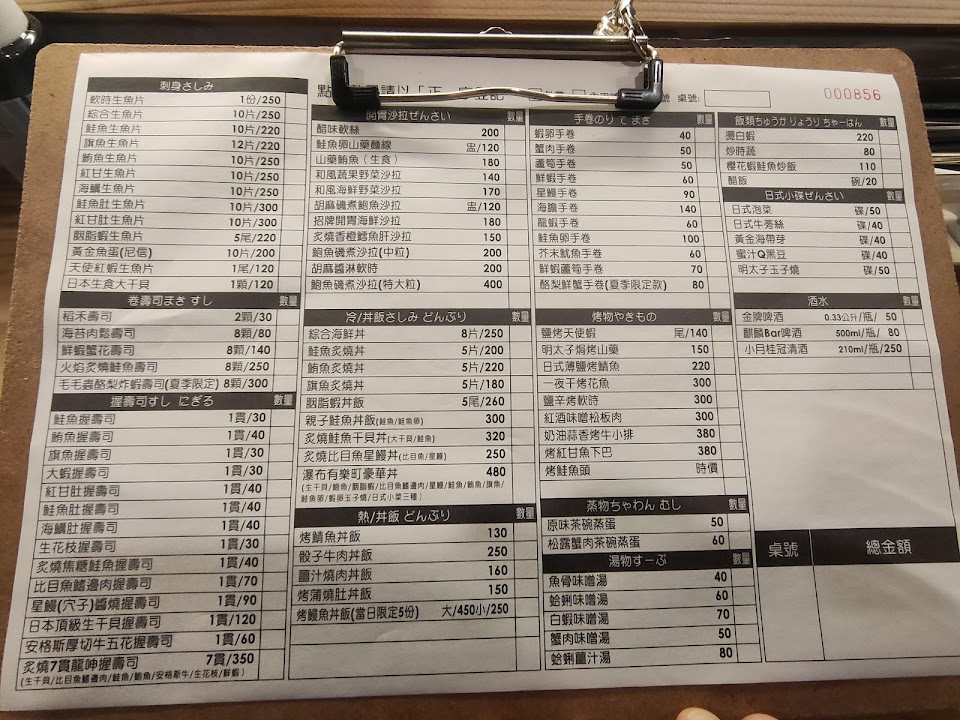 點 請以「正」 桌號: 000856
刺身さしみ
軟時生魚片 1份/250
綜合生魚片 10片/250
鮭魚生魚片 10片/220
旗魚生魚片 12片/220
鮪魚生魚片 10片/250
紅甘生魚片 10片/250
海鱺生魚片 10片/250
鮭魚肚生魚片 10片/300
紅甘肚生魚片 10片/300
胭脂蝦生魚片 5尾/220
黃金魚蛋(尼信) 10片/200
天使紅蝦生魚片 1尾/120
日本生食大干貝 1顆/120
卷壽司まき すし 數量
稻禾壽司 2顆/30
海苔肉鬆壽司 8顆/80
鮮蝦蟹花壽司 8顆/140
火焰炙燒鮭魚壽司 8顆/250
毛毛蟲酪梨炸蝦壽司(夏季限定) 8顆/300
握壽司すし にぎる 數量
鮭魚握壽司 1貫/30
鮪魚握壽司 1貫/40
旗魚握壽司 1貫/30
大蝦握壽司 1貫/30
紅甘肚握壽司 1貫/40
鮭魚肚握壽司 1貫/40
海鱺肚握壽司 1貫/40
生花枝握壽司 1貫/30
炙燒焦糖鮭魚握壽司 1貫/40
比目魚鰭邊肉握壽司 1貫/70
星鰻(穴子)醬燒握壽司 1貫/90
日本頂級生干貝握壽司 1貫/120
安格斯厚切牛五花握壽司 1貫/60
炙燒7貫龍呷握壽司 7貫/350
(生干貝/比目魚鰭邊肉/鮭魚/鮪魚/安格斯牛/生花枝/鮮蝦)
開胃沙拉ぜんさい 數量
醋味軟絲 200
鮭魚卵山藥麵線 盅/120
山藥鮪魚(生食) 180
和風蔬果野菜沙拉 140
和風海鮮野菜沙拉 170
胡麻磯煮鮑魚沙拉 盅/120
招牌開胃海鮮沙拉 180
炙燒香橙鱈魚肝沙拉 150
鮑魚磯煮沙拉(中粒) 200
胡麻醬淋軟時 200
鮑魚磯煮沙拉(特大粒) 400
冷/丼飯さしみ どんぶり 數量
綜合海鮮丼 8片/250
鮭魚炙燒丼 5片/200
鮪魚炙燒丼 5片/220
旗魚炙燒丼 5片/180
胭脂蝦丼飯 5尾/260
親子鮭魚丼飯(鮭魚/鮭魚卵) 300
炙燒鮭魚干貝丼(大干貝/鮭魚) 320
炙燒比目魚星鰻丼(比目魚/星鰻) 250
瀑布有樂町豪華丼 480
(生干貝/鮑魚/胭脂蝦/比目魚鰭邊肉/星鰻/鮭魚/鮪魚/旗魚/
鮭魚卵/蝦卵玉子燒/日式小菜三種)
熱/丼飯 どんぶり 數量
烤鯖魚丼飯 130
骰子牛肉丼飯 250
薑汁燒肉丼飯 160
烤蒲燒肚丼飯 150
烤鰻魚丼飯(當日限定5份) 大/450小/250
手卷のり てまき 數量
蝦卵手卷 40
蟹肉手卷 50
蘆筍手卷 50
鮮蝦手卷 60
星鰻手卷 90
海膽手卷 140
龍蝦手卷 60
鮭魚卵手卷 100
芥末魷魚手卷 60
鮮蝦蘆筍手卷 70
酪梨鮮蟹手卷(夏季限定款) 80
烤物やきもの 數量
鹽烤天使蝦 尾/140
明太子焗烤山藥 150
日式薄鹽烤鯖魚 220
一夜干烤花魚 300
鹽辛烤軟時 300
紅酒味噌松板肉 300
奶油蒜香烤牛小排 380
烤紅甘魚下巴 380
烤鮭魚頭 時價
蒸物ちゃわん むし 數量
原味茶碗蒸蛋 50
松露蟹肉茶碗蒸蛋 60
湯物すーぷ 數量
魚骨味噌湯 40
蛤蜊味噌湯 60
白蝦味噌湯 70
蟹肉味噌湯 50
蛤蜊薑汁湯 80
飯類ちゅうか りょうり ちゃーはん 數量
燙白蝦 220
炒時蔬 80
櫻花蝦鮭魚炒飯 110
醋飯 碗/20
日式小碟ぜんさい 數量
日式泡菜 碟/50
日式牛蒡絲 碟/40
黃金海帶芽 碟/40
蜜汁Q黑豆 碟/40
明太子玉子燒 碟/50
酒水 數量
金牌啤酒 0.33公升/瓶/ 50
麒麟Bar啤酒 500ml/瓶/ 80
小月桂冠清酒 210ml/瓶/250
桌號 總金額